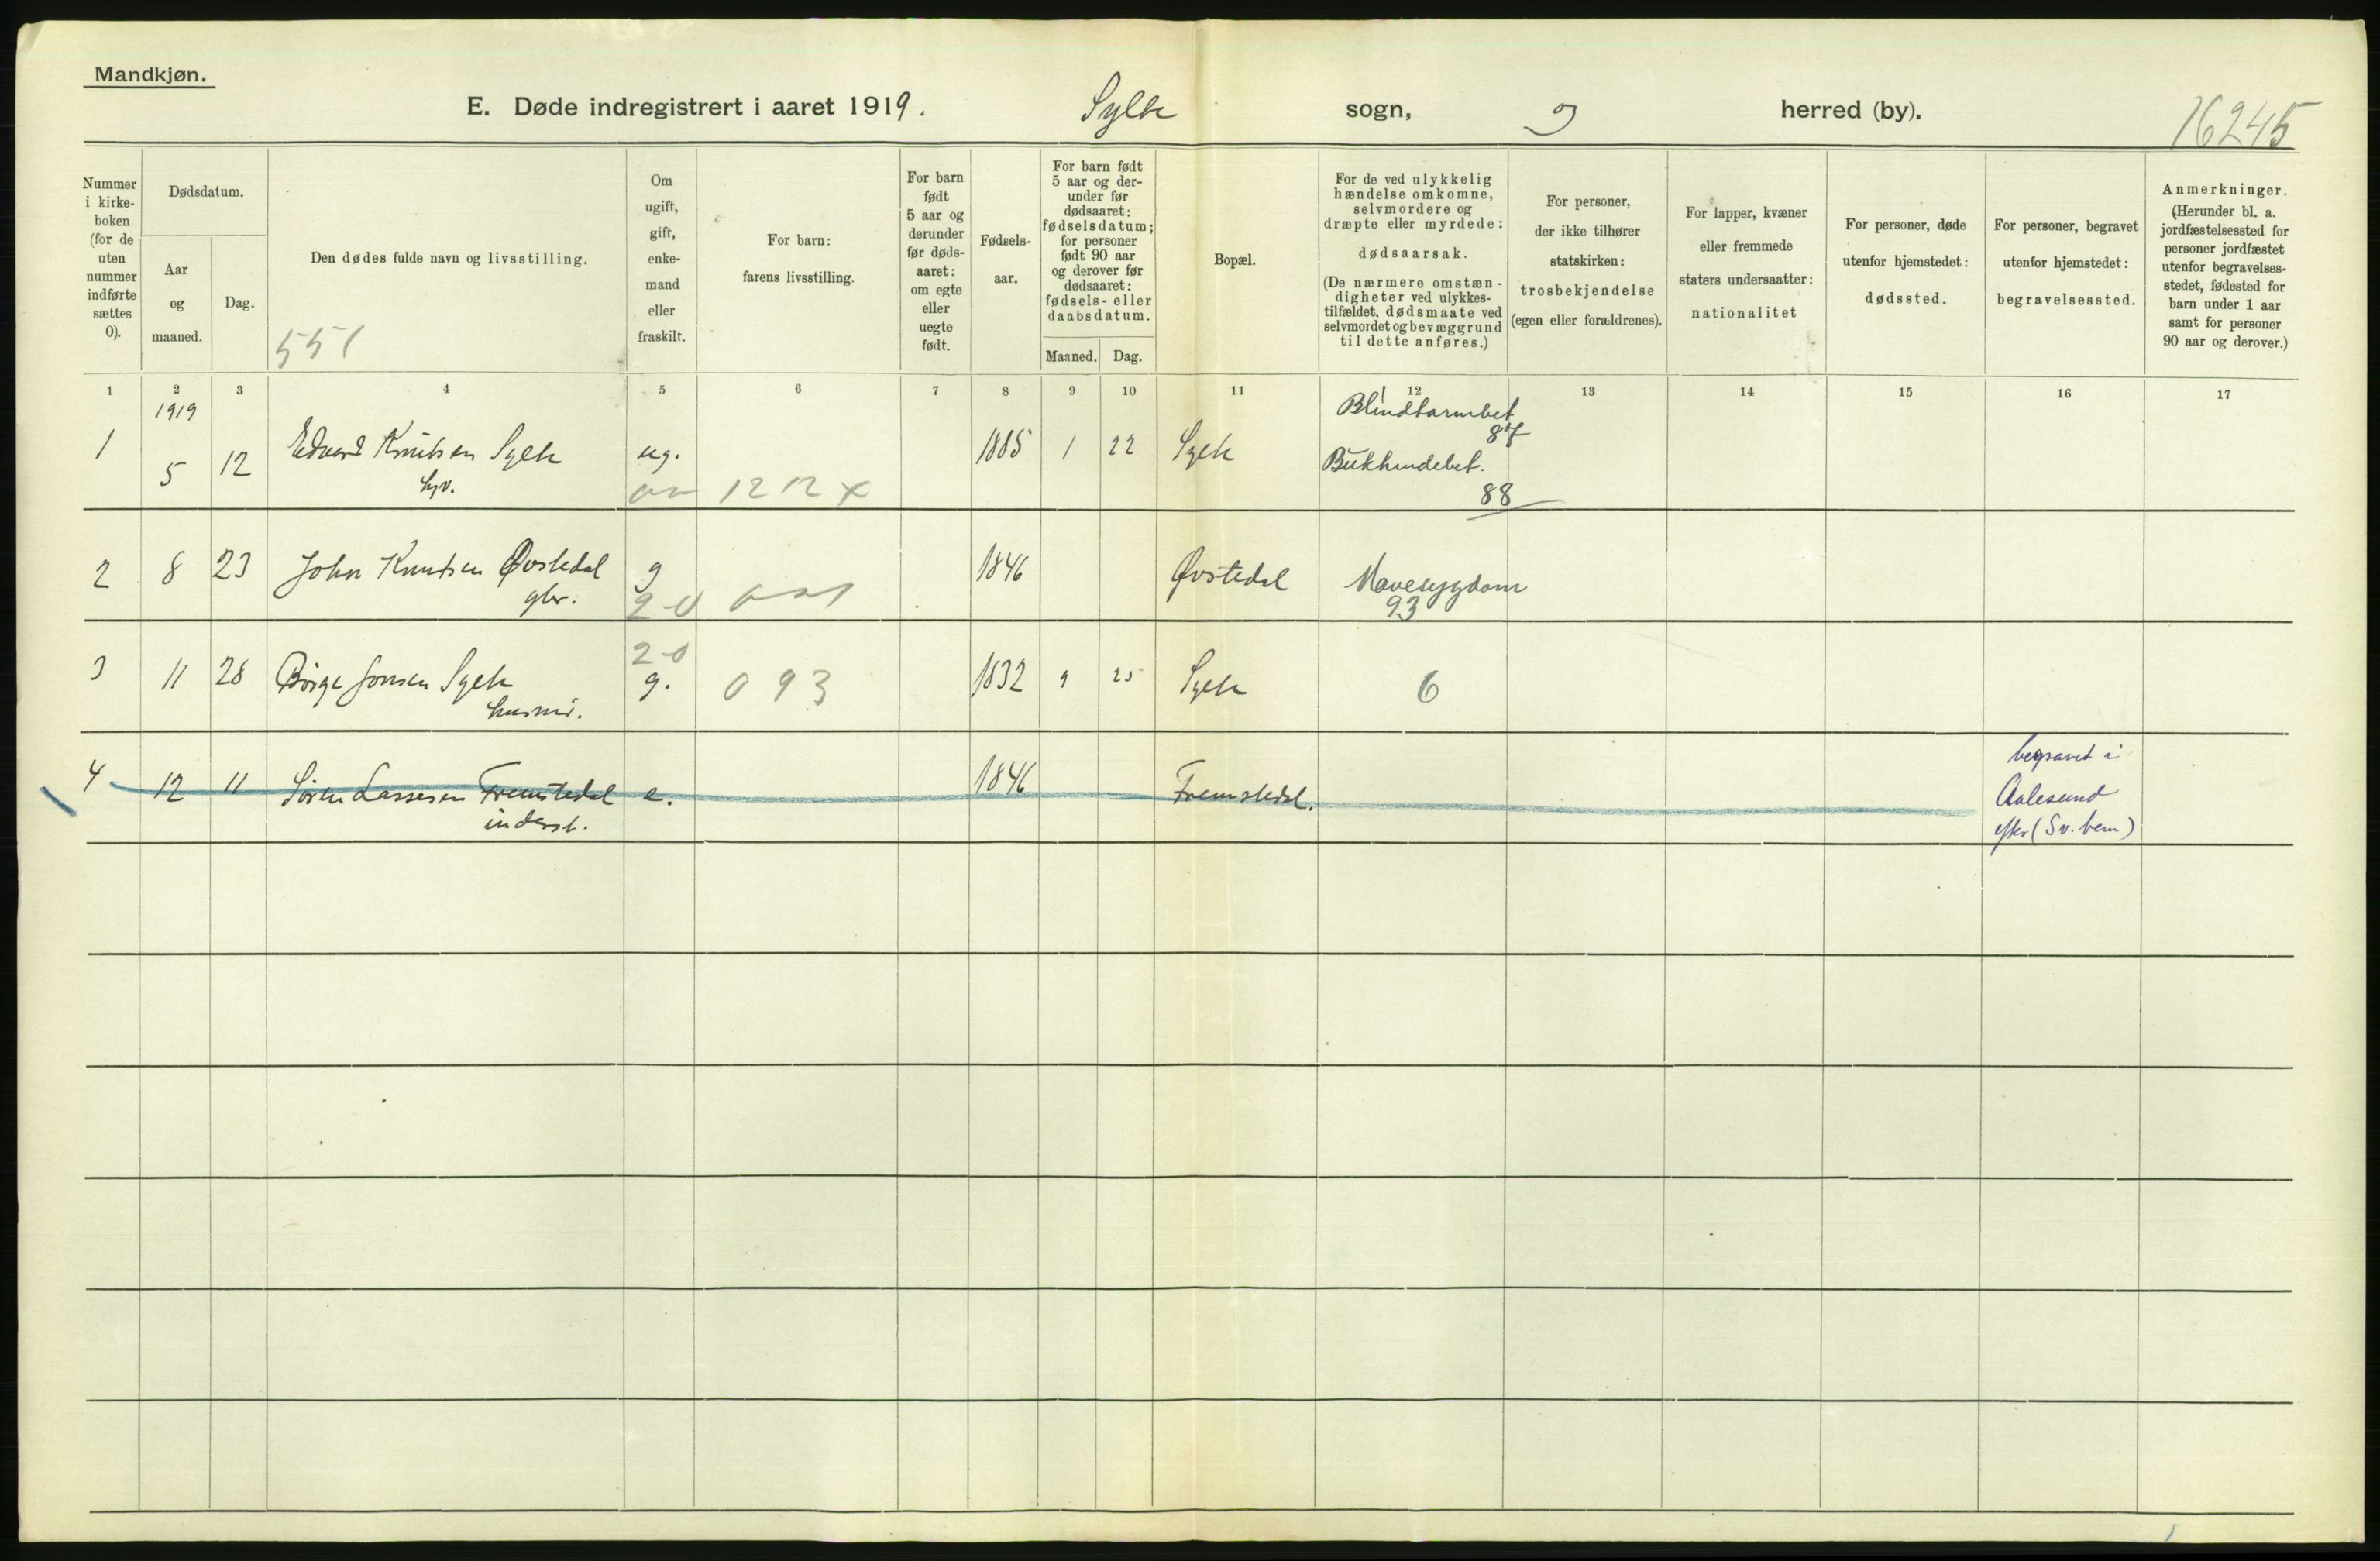 Mandkjøn.
E. Døde indregistrert i aaret 1919. Sylte sogn, herred (by).
16245
Nummer
i kirke-
boken
(for de
uten
nummer
indførte
sættes
0).
Dødsdatum.
Aar
og
maaned.
Dag.
Den dødes fulde navn og livsstilling.
551
Om
ugift,
gift,
enke-
mand
eller
fraskilt.
For barn:
farens livsstilling.
For barn
født
5 aar og
derunder
før døds-
aaret:
om egte
eller
uegte
født.
Fødsels-
aar.
For barn født
5 aar og der-
under før
dødsaaret:
fødselsdatum;
for personer
født 90 aar
og derover før
dødsaaret:
fødsels- eller
daabsdatum.
Maaned. Dag.
Bopæl.
For de ved ulykkelig
hændelse omkomne,
selvmordere og
dræpte eller myrdede:
dødsaarsak.
(De nærmere omstæn-
digheter ved ulykkes-
tilfældet, dødsmaate ved
selvmordet og bevæggrund
til dette anføres.)
For personer,
der ikke tilhører
statskirken:
trosbekjendelse
(egen eller forældrenes).
For lapper, kvæner
eller fremmede
staters undersaatter:
nationalitet
For personer, døde
utenfor hjemstedet:
dødssted.
For personer, begravet
utenfor hjemstedet:
begravelsessted.
Anmerkninger.
(Herunder bl. a.
jordfæstelsessted for
personer jordfæstet
utenfor begravelses-
stedet, fødested for
barn under 1 aar
samt for personer
90 aar og derover.)
1 2 3 4 5 6 7 8 9 10 11 12 13 14 15 16 17
1919
1 5 12 Edvard Knutsen Sylte ug. 1885 1 22 Sylte Blindtarmbet.
87
Bukhindebet.
88
1212 x
2 8 23 John Knutsen Øvstedal g 1846 Øvstedal Mavesygdom
gbr. 93
3 11 28 Børge Jonsen Sylte g. 093 1832 9 25 Sylte 6
husm.
4 12 11 Søren Lassesen Fremstedal e. 1846 Fremstedal. begravet i
inderst. Aalesund
efter (Sv. bem)